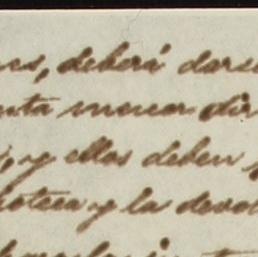 es, deberá darse
nta menor dir
, y ellos deben
oteca y la devol